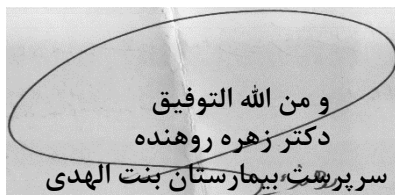 و من الله التوفیق
دکتر زهره روهنده
سرپرست بیمارستان بنت الهدی